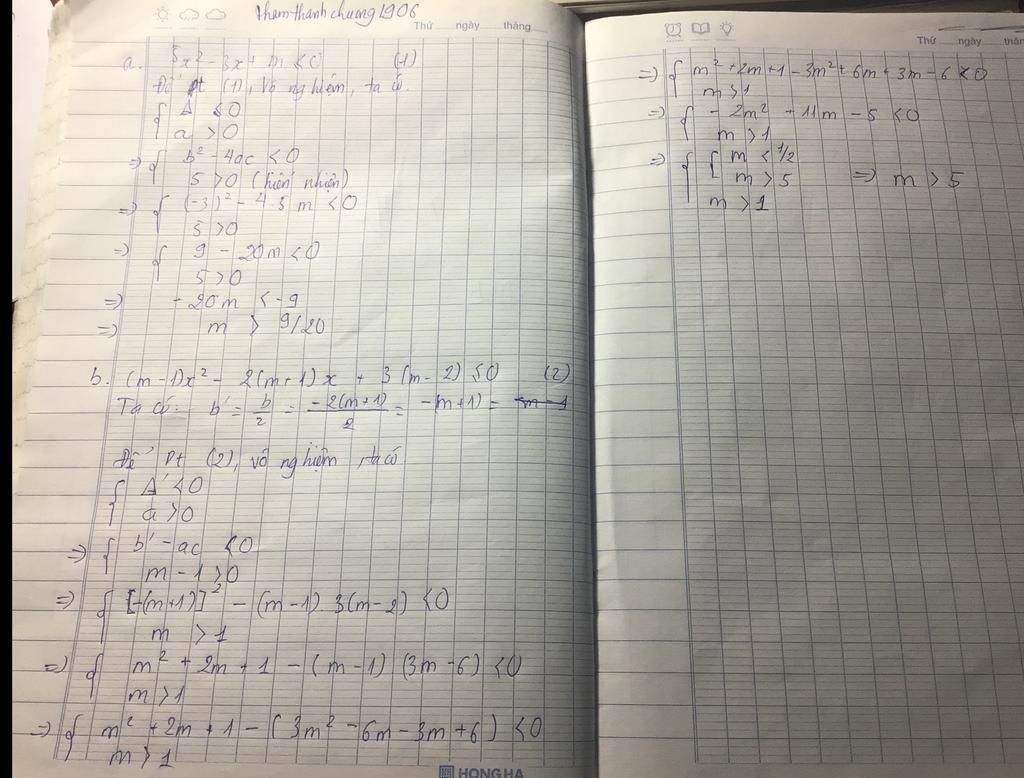 thamthanhchuong1906
Thứ ngày tháng
a. 5x² - 3x + m < 0 (1)
Để pt (1), vô nghiệm, ta có.
{ Δ < 0
a > 0
=> { b² - 4ac < 0
5 > 0 (hiển nhiên)
=> { (-3)² - 4.5 m < 0
5 > 0
=> { 9 - 20m < 0
5 > 0
=> - 20m < -9
=> m > 9/20
b. (m-1)x² - 2(m+1)x + 3(m-2) < 0 (2)
Ta có: b' = b/2 = -2(m+1)/2 = -(m+1) = -m-1
Để pt (2), vô nghiệm, ta có
{ Δ' < 0
a > 0
=> { b' - ac < 0
m - 1 > 0
=> { [-(m+1)]² - (m-1).3(m-2) < 0
m > 1
=> { m² + 2m + 1 - (m-1) (3m-6) < 0
m > 1
=> { m² + 2m + 1 - (3m² - 6m - 3m + 6) < 0
m > 1
HONG HA
Thứ ngày thán
=> { m² + 2m + 1 - 3m² + 6m + 3m - 6 < 0
m > 1
=> { - 2m² + 11m - 5 < 0
m > 1
=> { [ m < 1/2
m > 5 => m > 5
m > 1